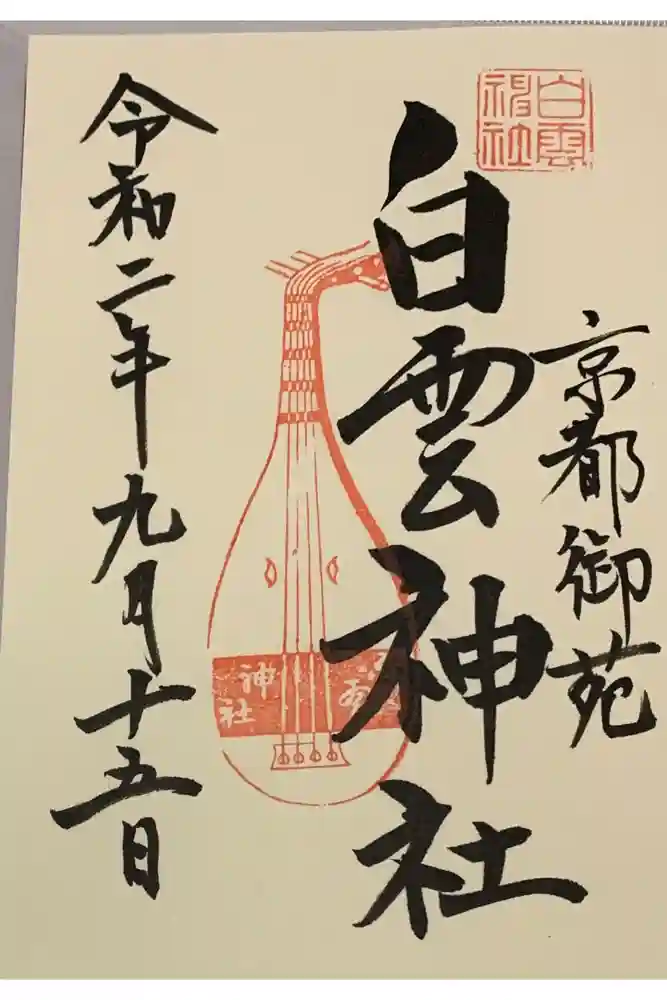 白雲神社
京都御苑
白雲神社
神社
令和二年九月十五日